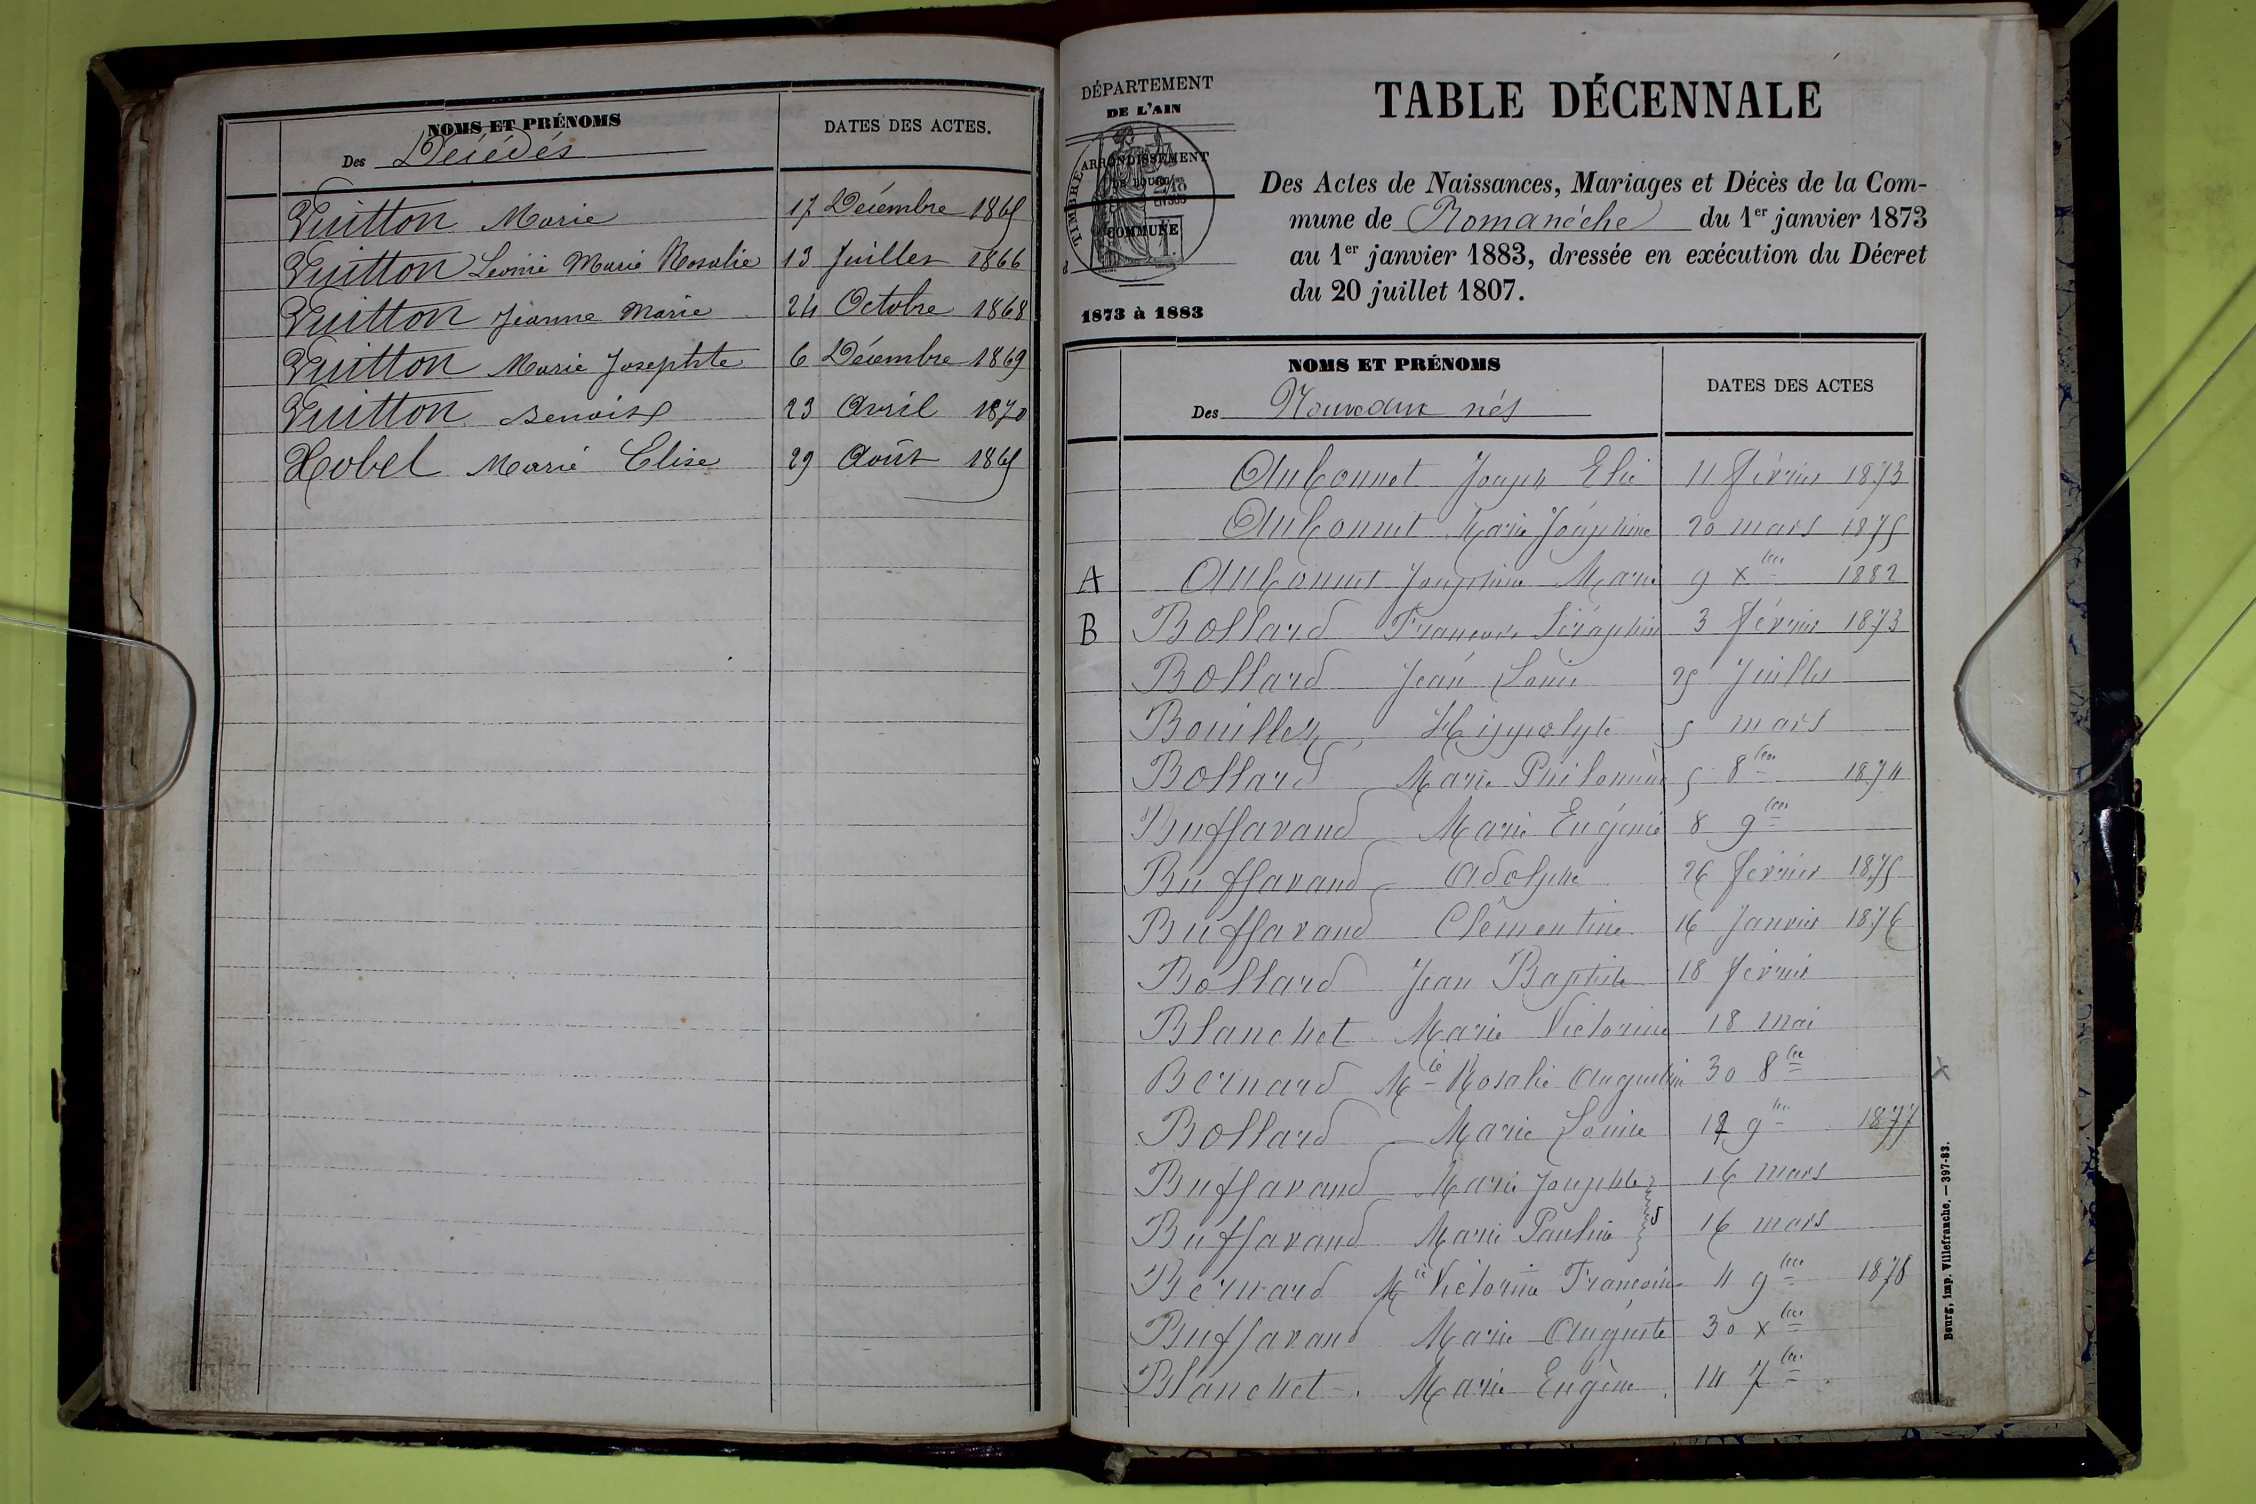 NOMS ET PRÉNOMS
Des Décédés
DATES DES ACTES.
Vuitton Marie 17 Décembre 1865
Vuitton Léonie Marie Rosalie 13 Juillet 1866
Vuitton Jeanne Marie 24 Octobre 1868
Vuitton Marie Josephte 6 Décembre 1869
Vuitton Benoist 23 Avril 1870
Xobel Marie Elise 29 Août 1865
DÉPARTEMENT
DE L'AIN
ARRONDISSEMENT
DE BOURG
COMMUNE
1873 à 1883
TABLE DÉCENNALE
Des Actes de Naissances, Mariages et Décès de la Com-
mune de Romanèche du 1er janvier 1873
au 1er janvier 1883, dressée en exécution du Décret
du 20 juillet 1807.
NOMS ET PRÉNOMS
Des Nouveaux nés
DATES DES ACTES
Aubonnet Joseph Elie 11 février 1873
Aubonnet Marie Joséphine 20 mars 1875
A Aubonnet Joséphine Marie 9 xbre 1882
B Bollard François Séraphin 3 février 1873
Bollard Jean Louis 25 Juillet
Bouillez Hippolyte 5 mars
Bollard Marie Philomène 5 8bre 1874
Buffavand Marie Eugénie 8 9bre
Buffavand Adolphe 26 février 1875
Buffavand Clémentine 16 Janvier 1876
Bollard Jean Baptiste 18 février
Blanchet Marie Victorine 18 mai
Bernard Mie Rosalie Augustine 30 8bre
Bollard Marie Louise 9bre 1877
Buffavand Marie Josephte 16 mars
Buffavand Marie Pauline 16 mars
Bernard Mie Victorine Françoise 4 9bre 1878
Buffavand Marie Auguste 30 xbre
Blanchet Marie Eugène 14 7bre
Bourg, imp. Villefranche. — 397-83.